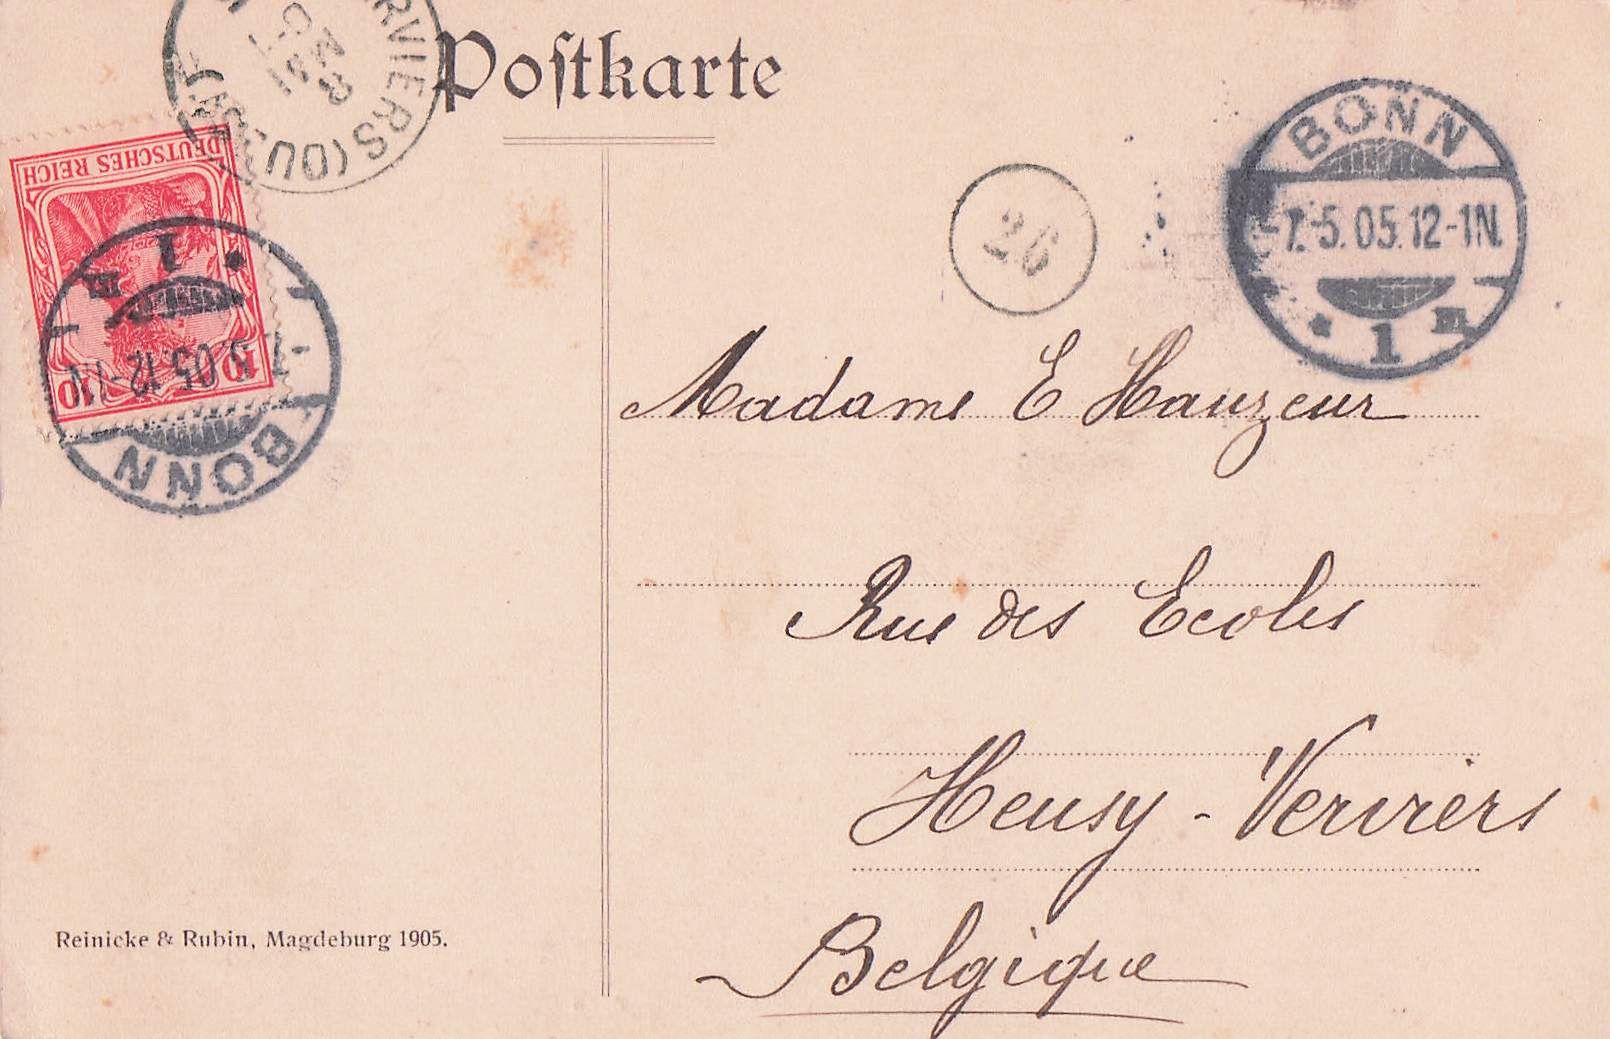 Postkarte
VERVIERS (OUEST)
8
MAI
DEUTSCHES REICH
10 10
BONN
7.5.05.12-1N.
* 1 m
26
BONN
-7.-5.05.12-1N.
* 1 m
Madame E Hauzeur
Rue des Ecoles
Heusy - Verviers
Belgique
Reinicke & Rubin, Magdeburg 1905.